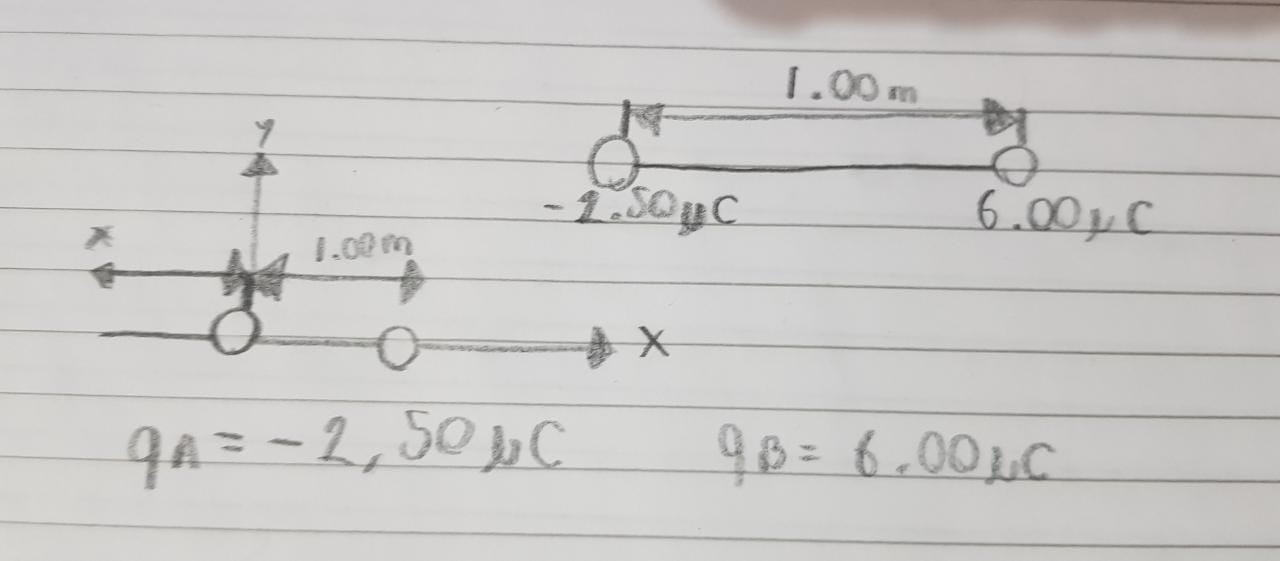 1.00m
-2.50μC 6.00μC
y
x 1.00m
x
qA = -2,50μC qB = 6.00μC